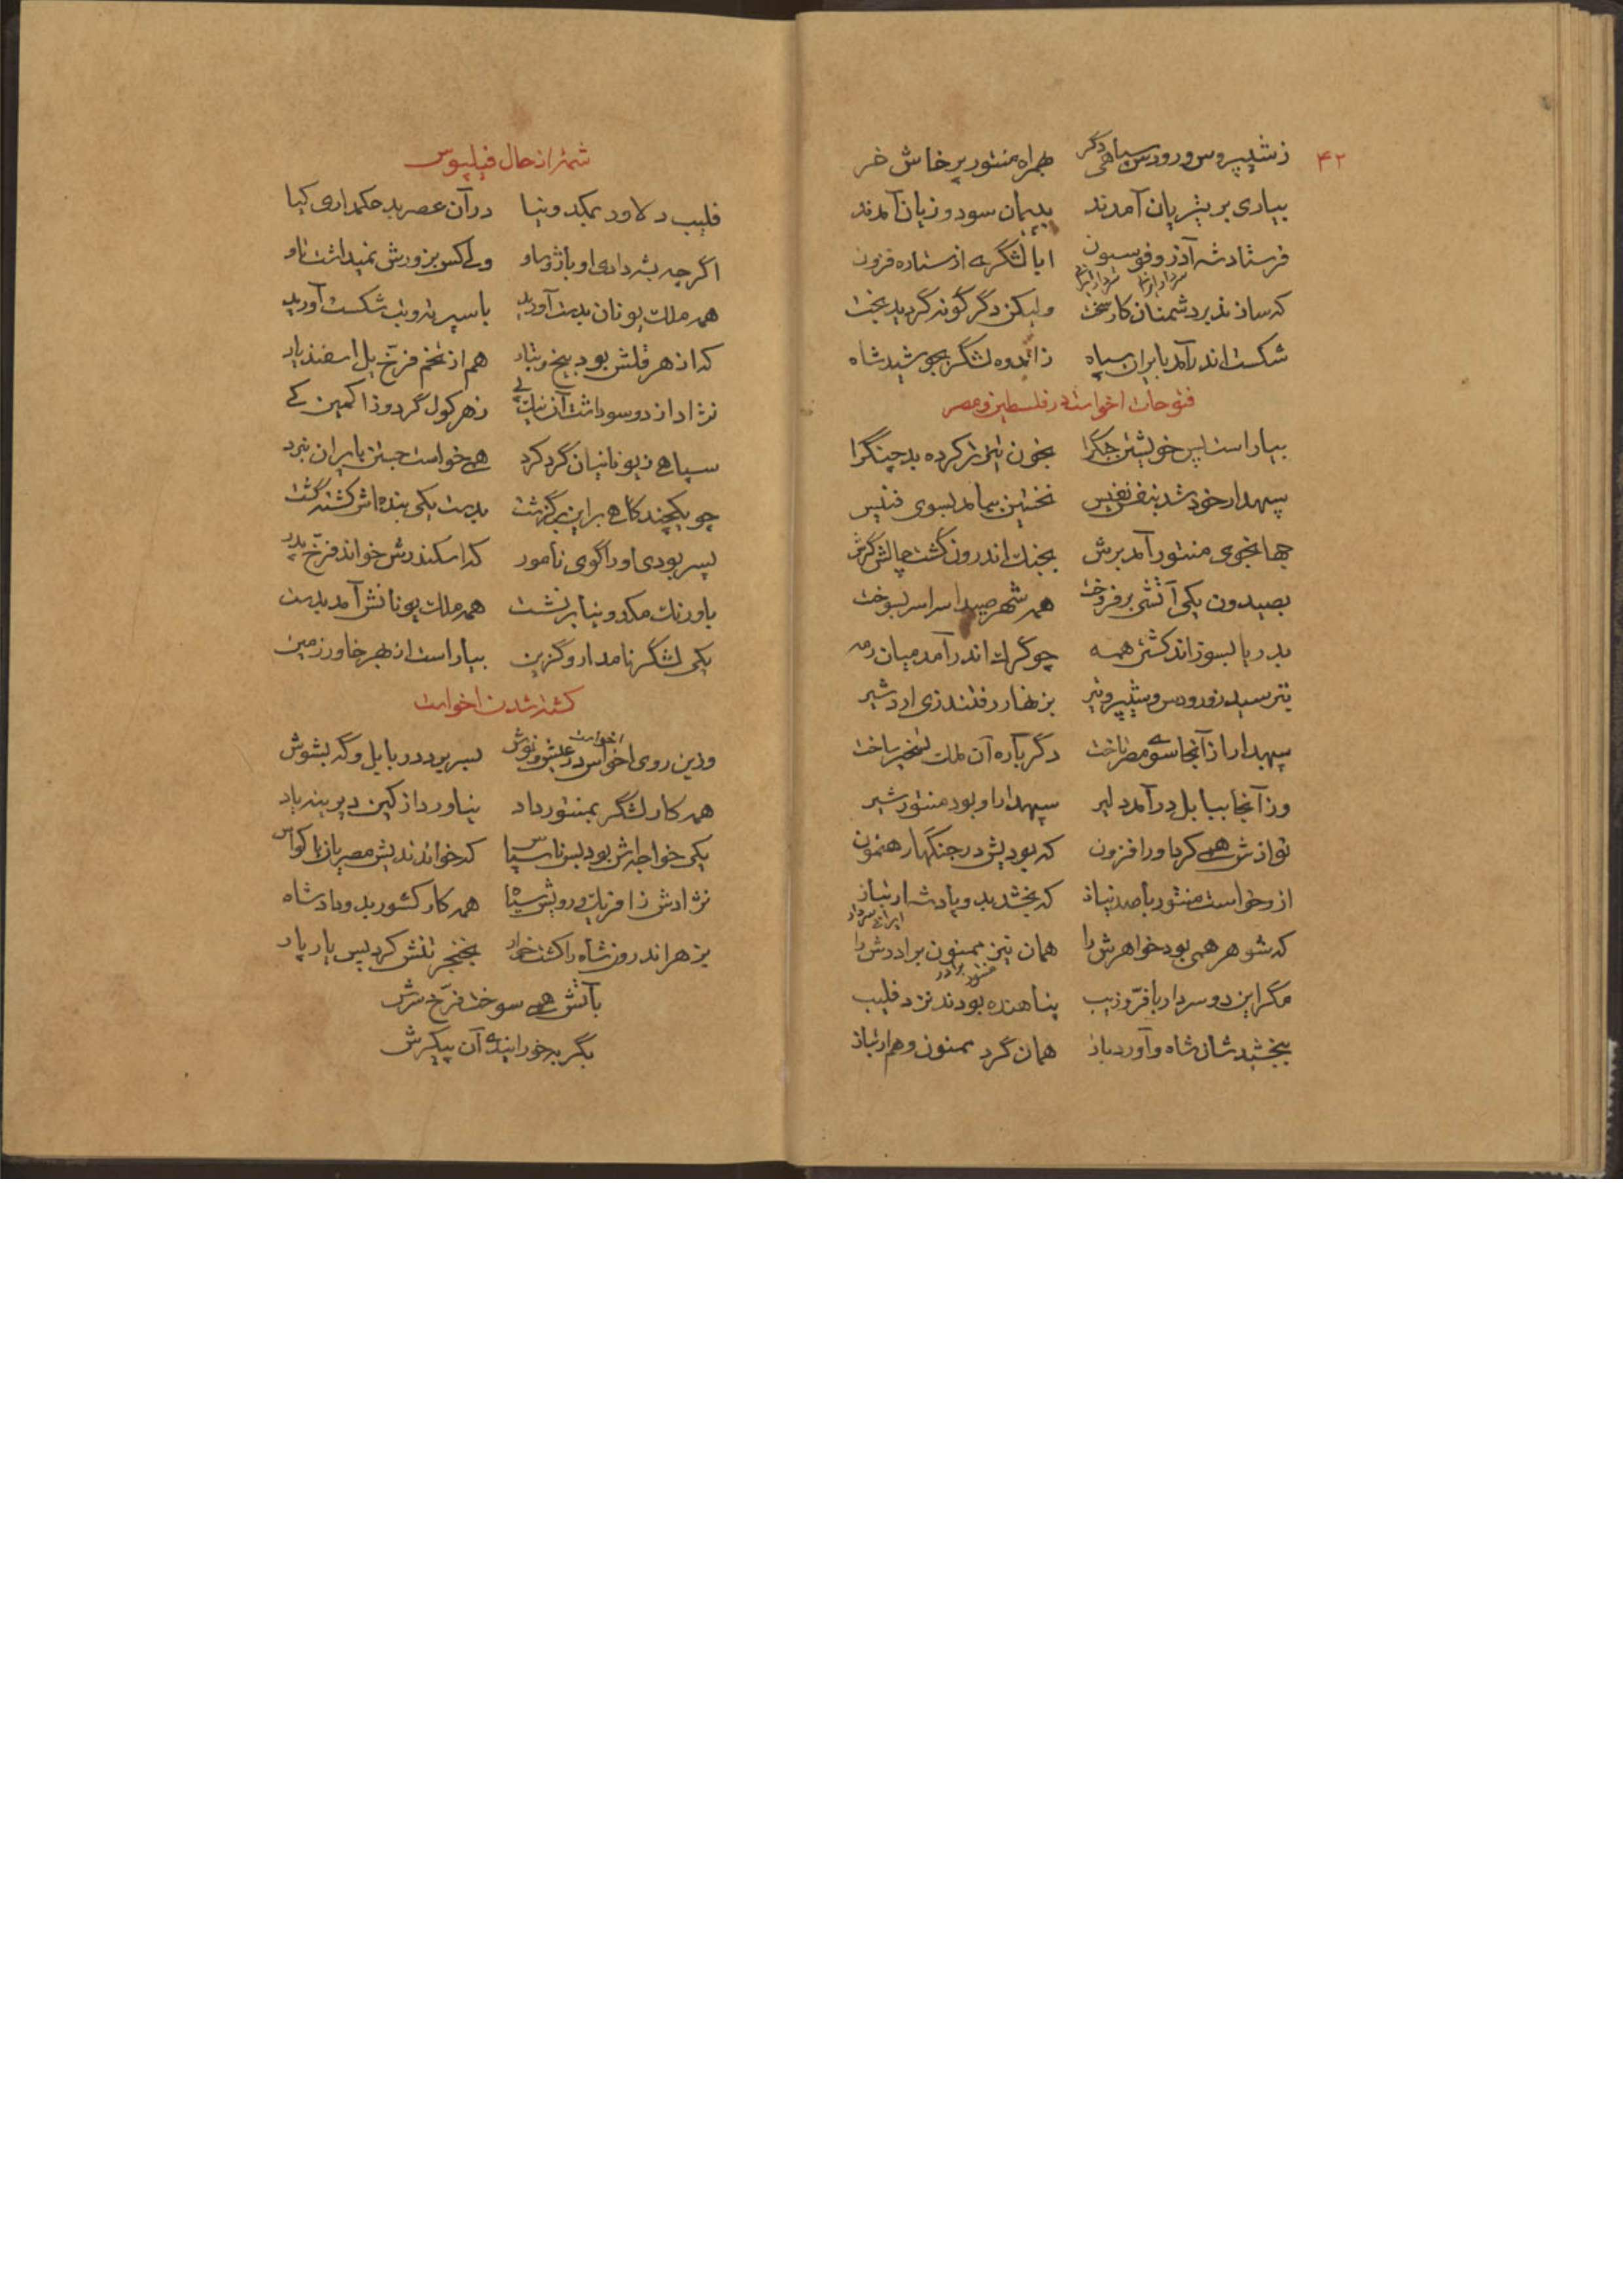 ۴۲
ز شیپروس و رودس سپاهی دگر بهمراه منتور پرخاش خر
بیاری بر یتریان آمدند بدیشان سود و زیان آمدند
فرستاد شه آذر و فوسیون ابا لشگری از ستاره فزون
سردار سردار
که سازند بر دشمنان کار سخت ولیکن دگرگونه گردید بخت
شکست اندر آمد بایران سپاه ز اندوه لشگر بجوشید شاه
فتوحات اخواست در فلسطین و مصر
بیاراست پس خویشتن جنگ را بخون تیز تر کرده بد چنگ را
سپهدار خود شد بنفس نفیس نخستین بیامد بسوی فنیس
جهانجوی منتور آمد برش بجنگ اندرون گشت چالش گرش
بصیدون یکی آتشی برفروخت همه شهر صیدا سراسر بسوخت
بدریا بسوزاند کشتی همه چو گرگ اندر آمد میان رمه
بترسید زو رودس و شیپر و نیز بزنهار رفتند زی اردشیر
سپهدار از آنجا سوی مصر تاخت دگر باره آن ملک تسخیر ساخت
وز آنجا ببابل درآمد دلیر سپهدار او بود منتور شیر
نوازش همی کرد او را فزون که بودیش در جنگها رهنمون
ازو خواست منتور با صد نیاز که بخشد بدو پادشه ارتباز
ایرانی سردار
که شوهر همی بود خواهرش را همان نیز ممنون برادرش را
منتور برادر
مگر این دو سردار با فرّ و زیب پناهنده بودند نزد فلیب
ببخشیدشان شاه و آورد باز همان گرد ممنون و هم ارتباز
شمه از حال فیلیپوس
فلیب دلاور بمکدونیا در آن عصر بد حکمداری کیا
اگر چه بشه دادی او باژ و ساو ولی کس بزورش نمیداشت تاو
همه ملک یونان بدست آورید باسپرته و تب شکست آورید
که از هرقلش بود بیخ و نباد هم از تخم فرّخ یل اسفندیار
نژاد از دو سو داشت آن نیک پی ز هرکول گرد و ز اکمین کی
سپاهی ز یونانیان گرد کرد همی خواست جستن بایران نبرد
چو یکچند گاهی برین برگذشت بدست یکی بنده‌اش کشته گشت
پسر بودی او را گوی نامور که اسکندرش خواند فرّخ پدر
باورنگ مکدونیا برنشست همه ملک یونانش آمد بدست
یکی لشگر نامدار و گزین بیاراست از بهر خاور زمین
کشته شدن اخواست
اخواست
وزین روی اخواس در عیش و نوش بسر برد در بابل و گه بشوش
همه کار لشگر بمنتور داد نیاورد از کین دیرینه یاد
یکی خواجه‌اش بود بس ناسپاس که خواندندیش مصریان باگواس
نژادش ز افریک و رویش سیاه همه کار کشور بد و پادشاه
بزهر اندرون شاه را کشت خوار بخنجر تنش کرد پس پار پار
بآتش همی سوخت فرّخ سرش
بگربه خورانیدی آن پیکرش